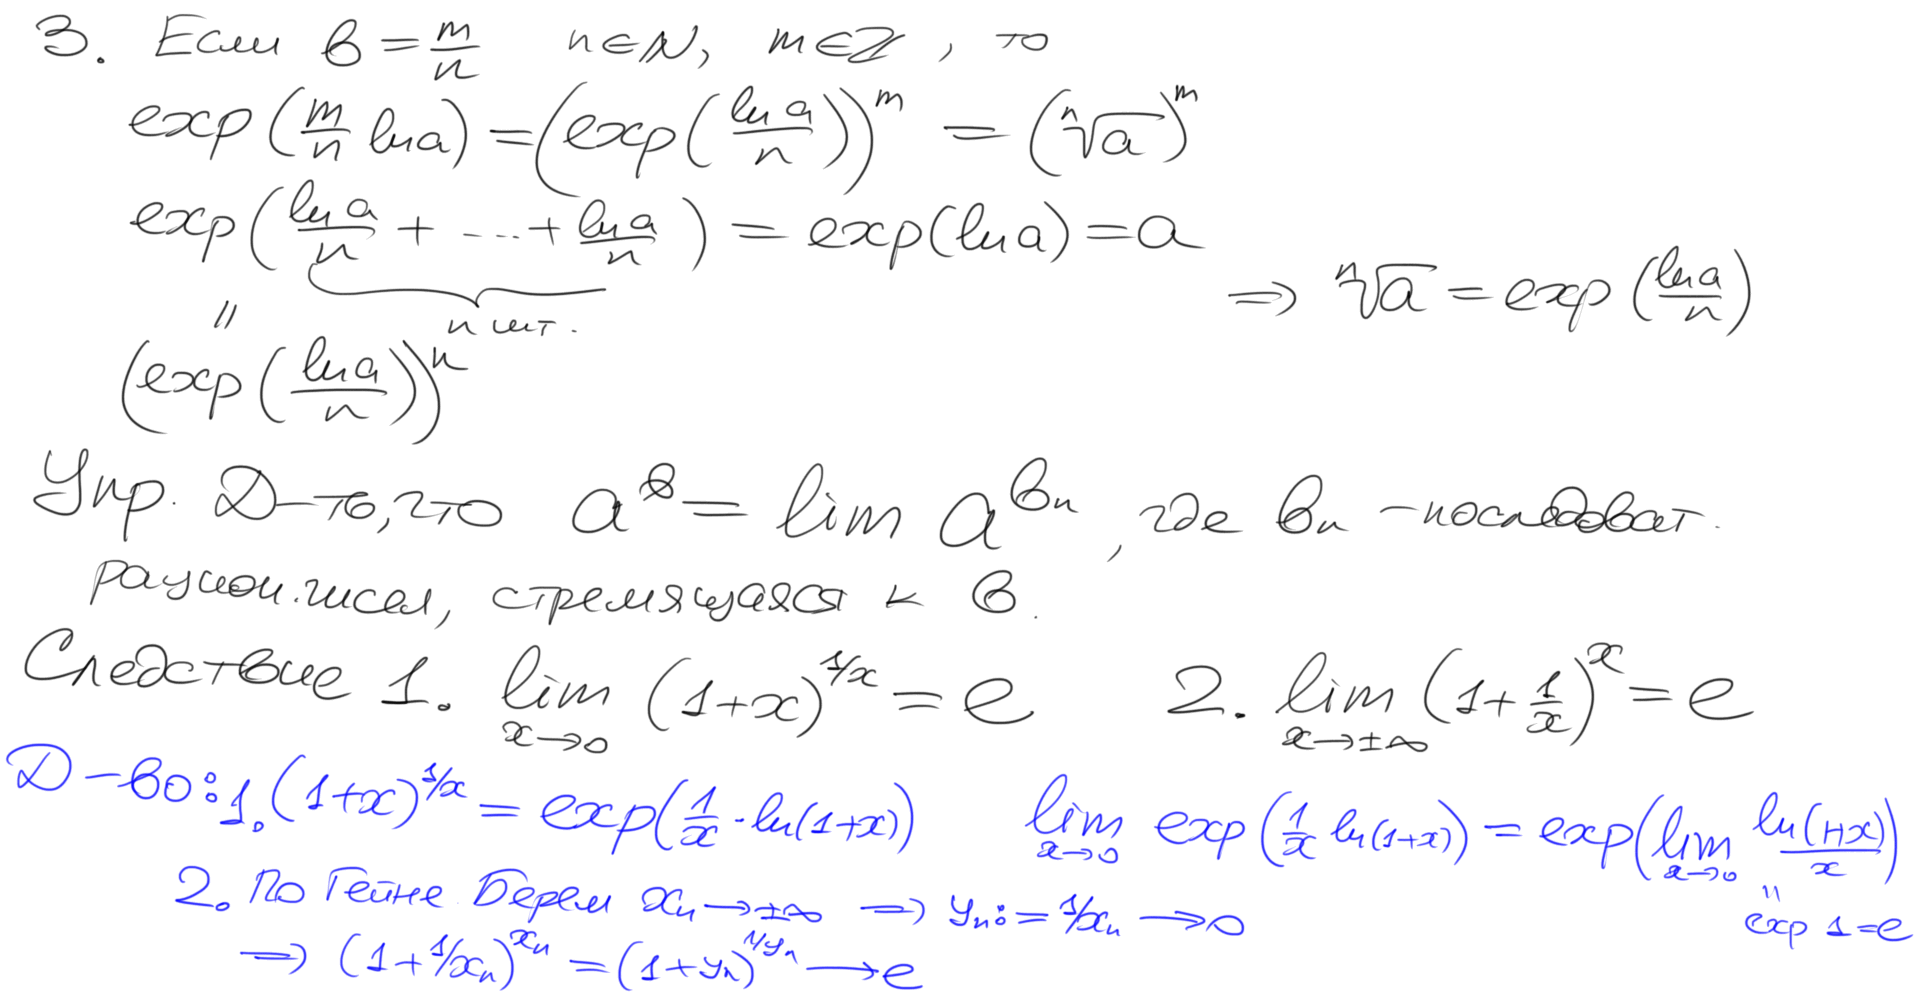 3. Если b = m/n n∈ℕ, m∈ℤ, то
exp(m/n ln a) = (exp(ln a/n))^m = (ⁿ√a)^m
exp(ln a/n + ... + ln a/n) = exp(ln a) = a
n шт.
⇒ ⁿ√a = exp(ln a/n)
||
(exp(ln a/n))^n
Упр. Д-ть, что a^b = lim a^(b_n), где b_n - последоват.
рацион. чисел, стремящаяся к b.
Следствие 1. lim_{x→0} (1+x)^{1/x} = e 2. lim_{x→±∞} (1+1/x)^x = e
Д-во: 1. (1+x)^{1/x} = exp(1/x · ln(1+x)) lim_{x→0} exp(1/x ln(1+x)) = exp(lim_{x→0} ln(1+x)/x)
||
exp 1 = e
2. По Гейне Берем x_n → ±∞ ⇒ y_n := 1/x_n → 0
⇒ (1+1/x_n)^{x_n} = (1+y_n)^{1/y_n} → e